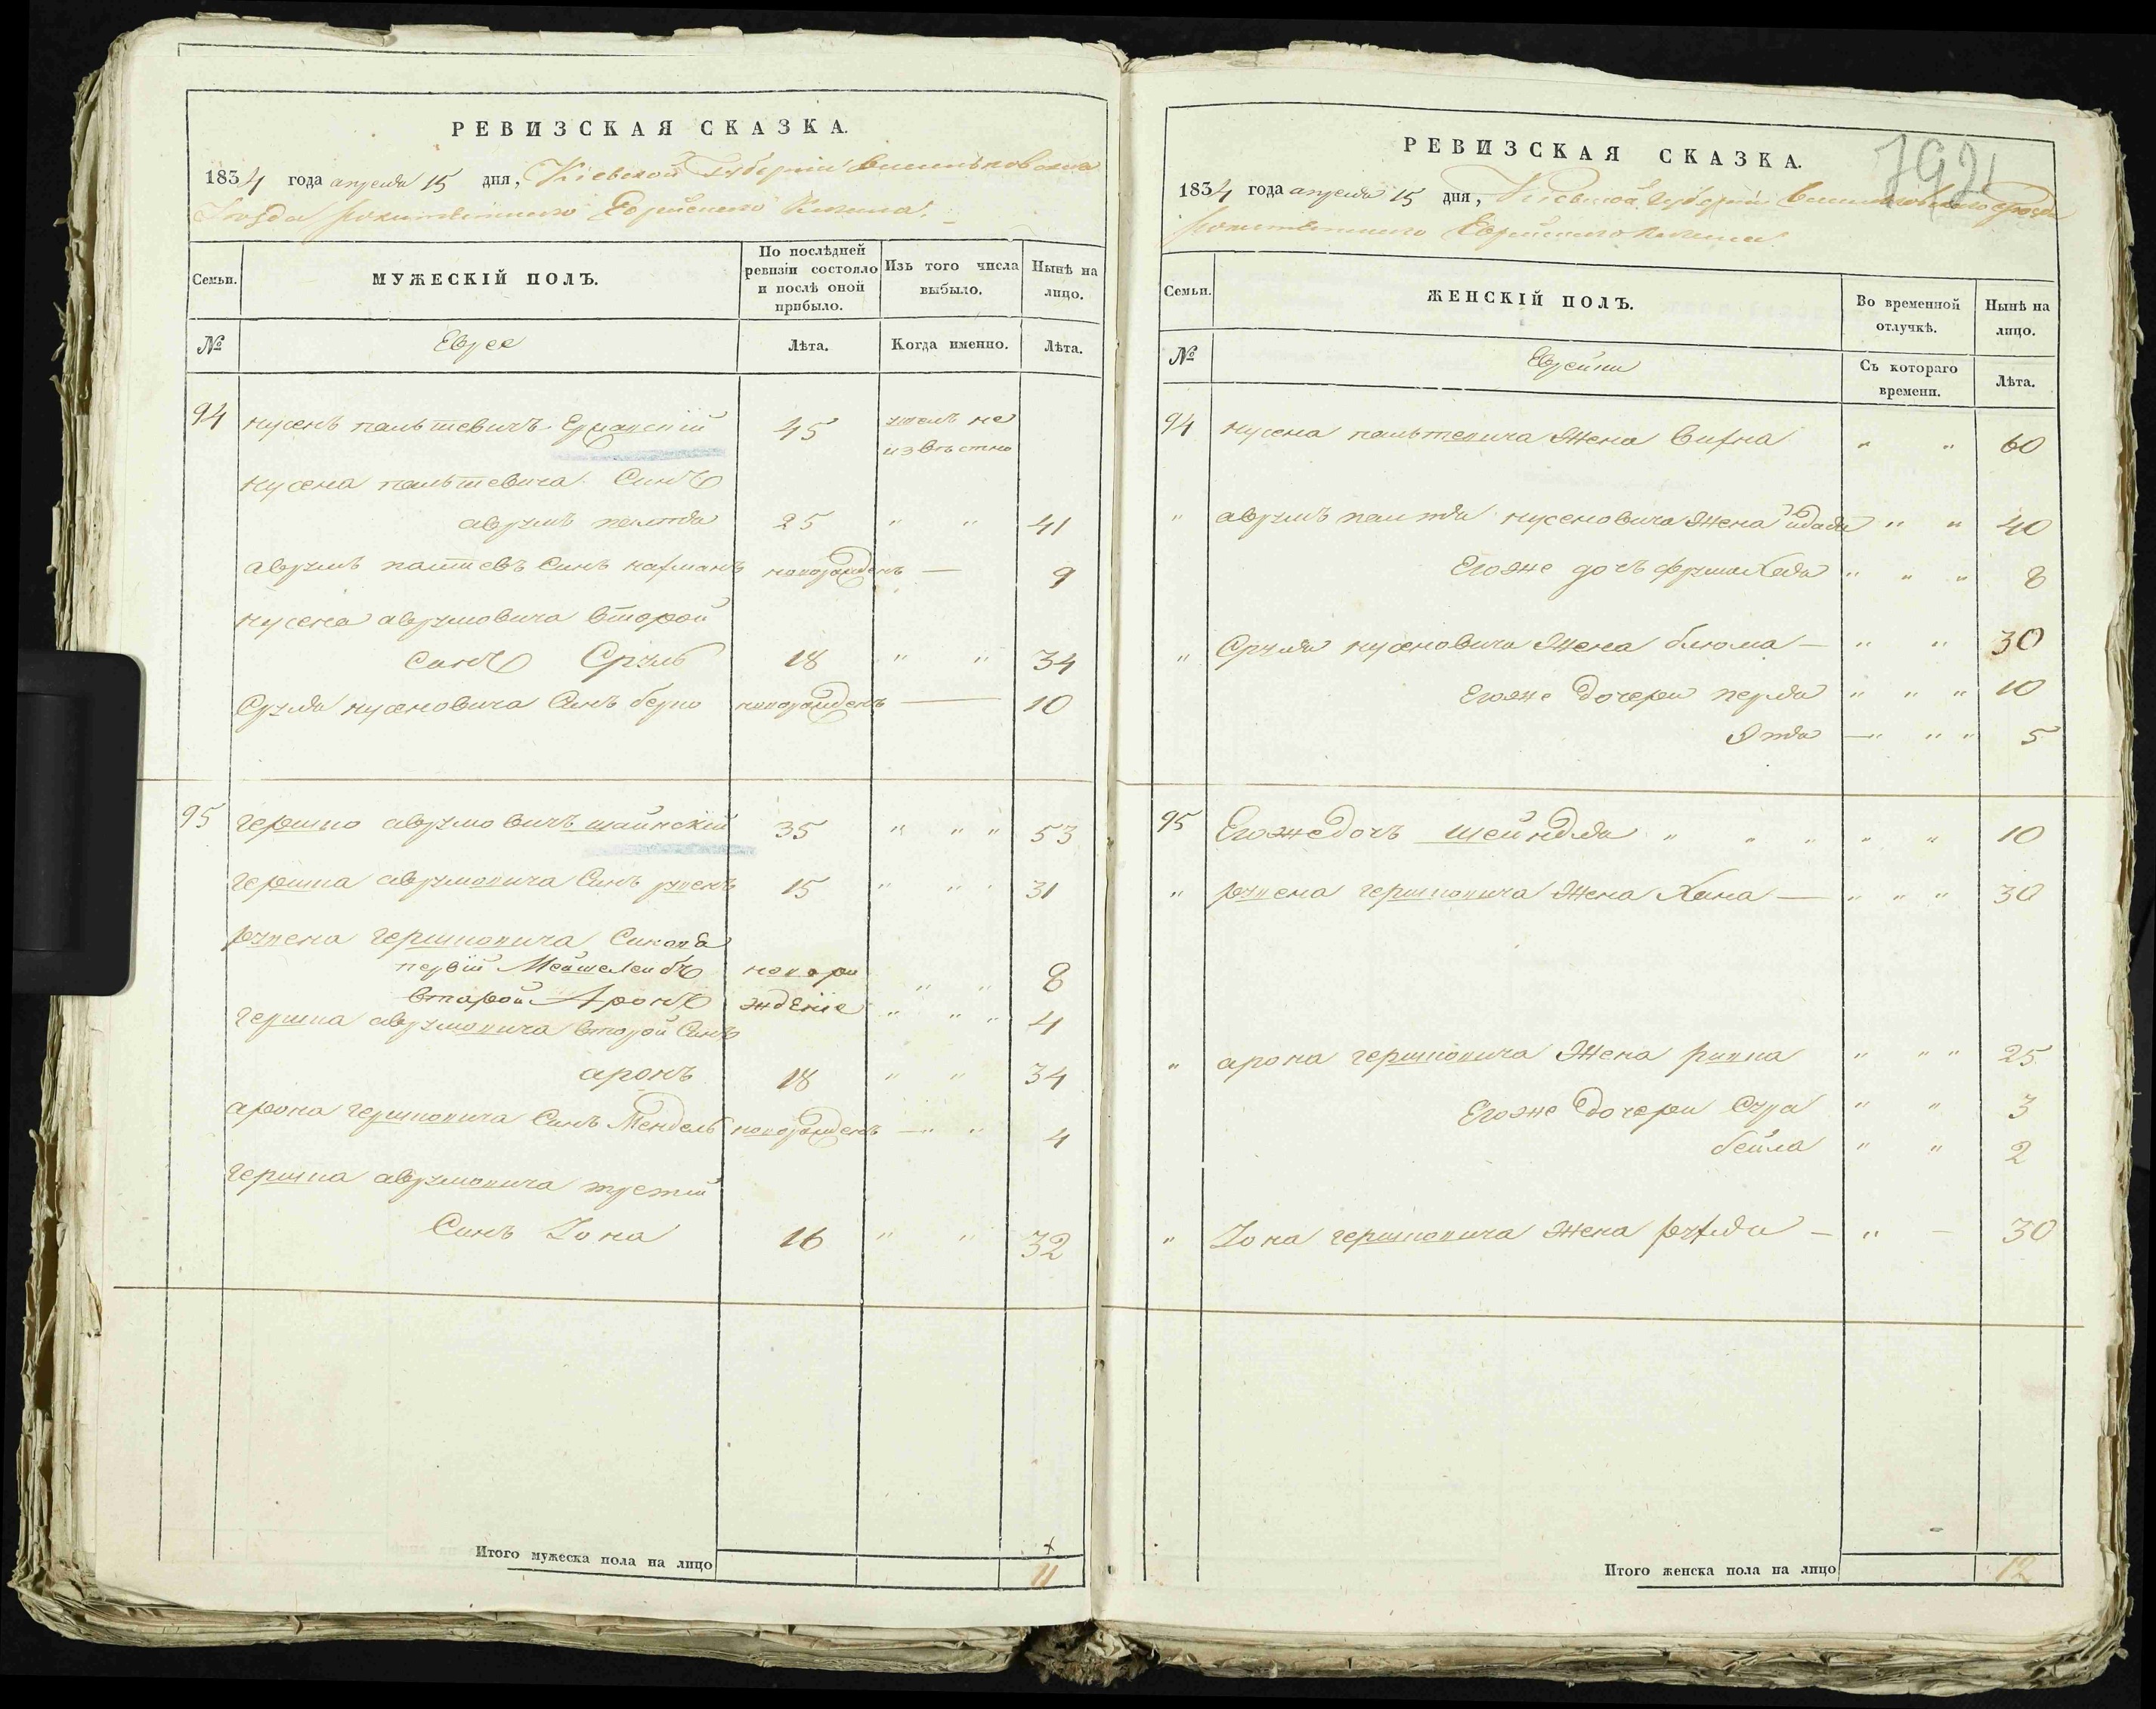 РЕВИЗСКАЯ СКАЗКА.
1834 года апреля 15 дня, Кіевской Губерніи Васильковского
Уезда Рокитянского Еврейского Кагала.
Семьи.
МУЖЕСКІЙ ПОЛЪ.
По послѣдней ревизіи состояло и послѣ оной прибыло.
Изъ того числа выбыло.
Нынѣ на лицо.
№
Евреи
Лѣта.
Когда именно.
Лѣта.
94 нусенъ пальтевичъ 45 не
извѣстно
нусена пальтевича Синъ
аврумъ палтя 25 " " 41
аврумъ Синъ нахманъ новорожденъ — 9
нусена аврумовича второй
синъ Сруль 18 " " 34
Сруля нусеновича Синъ берко новорожденъ — 10
95 гершко аврумовичъ шаинскій 35 " " " 53
гершка аврумовича Синъ рувенъ 15 " " " 31
рувена гершковича Синовя
первій новоро " " 8
второй Аронъ жденіе " " " 4
гершка аврумовича второй Синъ
аронъ 18 " " 34
арона гершковича Синъ Мендель новорожденъ — " " 4
гершка аврумовича третій
Синъ Іона 16 " " 32
Итого мужеска пола на лицо 11
РЕВИЗСКАЯ СКАЗКА.
792
1834 года апреля 15 дня, Кіевской Губерніи Васильковского Уезда
Рокитянского Еврейского Кагала.
Семьи.
ЖЕНСКІЙ ПОЛЪ.
Во временной отлучкѣ.
Нынѣ на лицо.
№
Еврейки
Съ котораго времени.
Лѣта.
94 нусена пальтевича Жена " " 60
" аврумъ палтя нусеновича Жена " " 40
Егоже дочъ " " " 8
" Сруля нусеновича Жена блюма — " " 30
Егоже дочери перля " " " 10
— " " " 5
95 Егоже дочъ шейндля " " " " " 10
" рувена гершковича Жена Хана — " " " 30
" арона гершковича Жена ривка " " " 25
Егоже дочери Сура " " 3
бейла " " 2
" Іона гершковича Жена рухля — " — 30
Итого женска пола на лицо 12